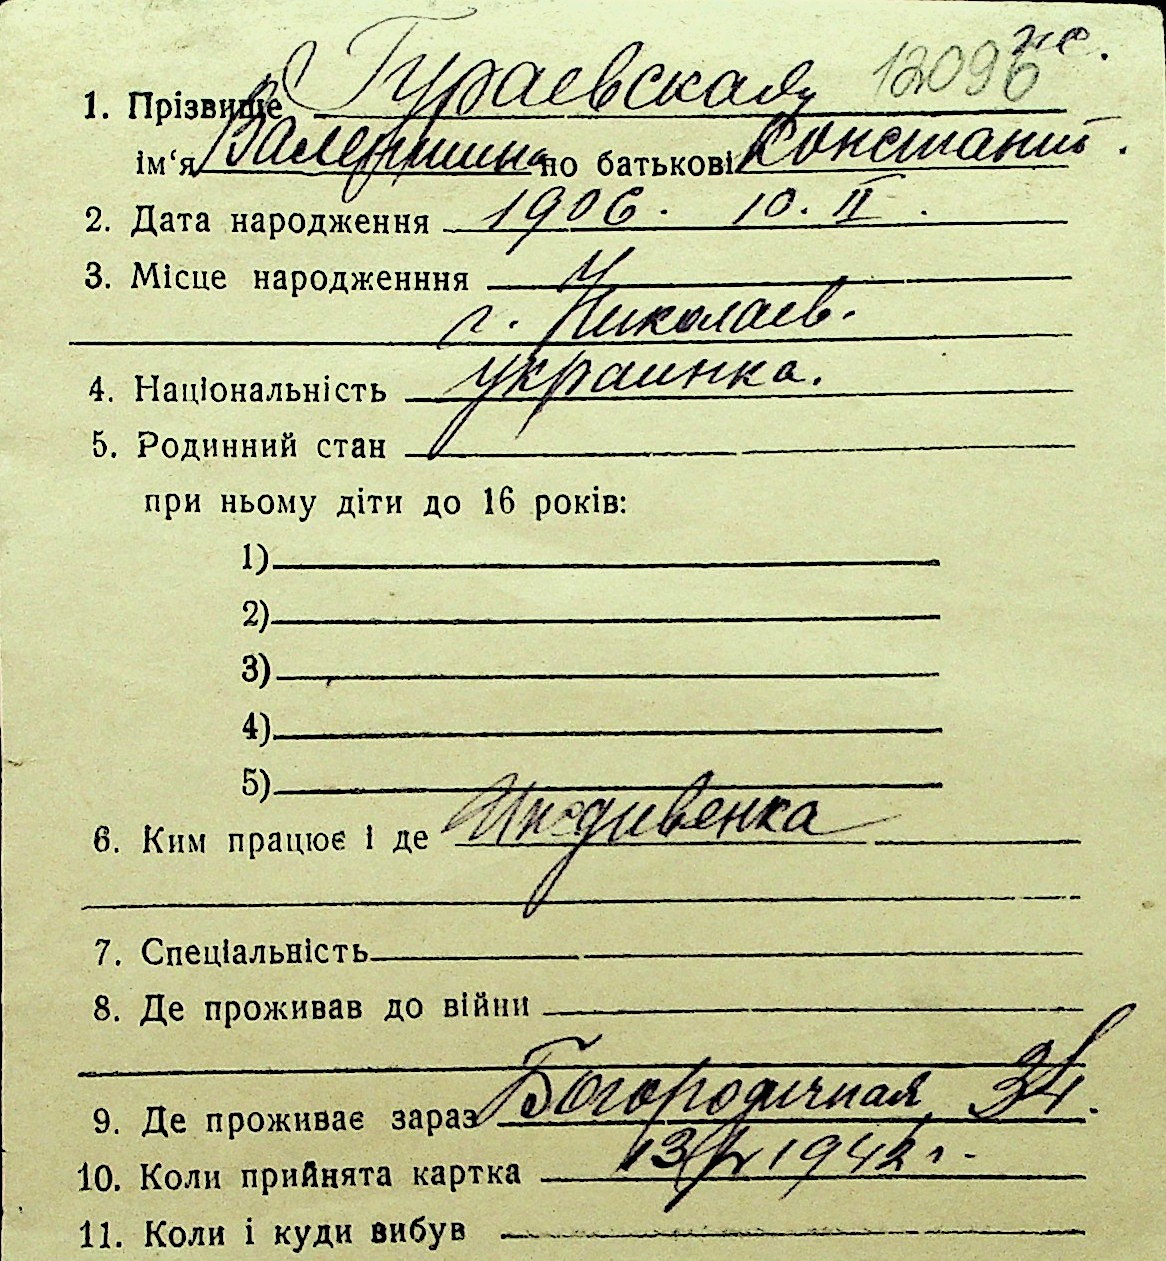 12096
ж.
1. Прізвище Гураевская
ім‘я Валентина по батькові Констант.
2. Дата народження 1906. 10. II.
3. Місце народженння
г. Николаев.
4. Національність украинка.
5. Родинний стан
при ньому діти до 16 років:
1)
2)
3)
4)
5)
6. Ким працює і де Иждивенка
7. Спеціальність
8. Де проживав до війни
9. Де проживає зараз Богородичная 34.
10. Коли прийнята картка 1942 г.
11. Коли і куди вибув